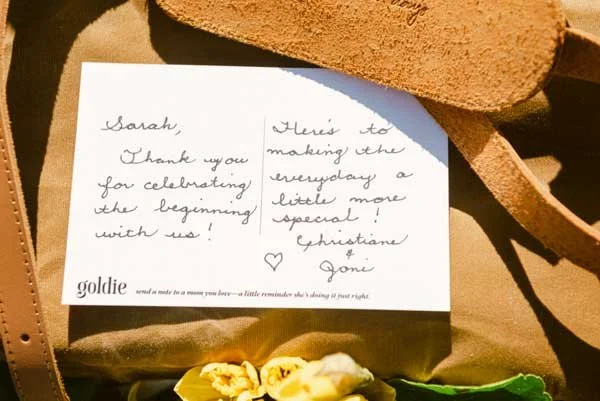 Sarah,
Thank you
for celebrating
the beginning
with us!
Here's to
making the
everyday a
little more
special!
Christiane
&
Joni
goldie
send a note to a mom you love—a little reminder she's doing it just right.